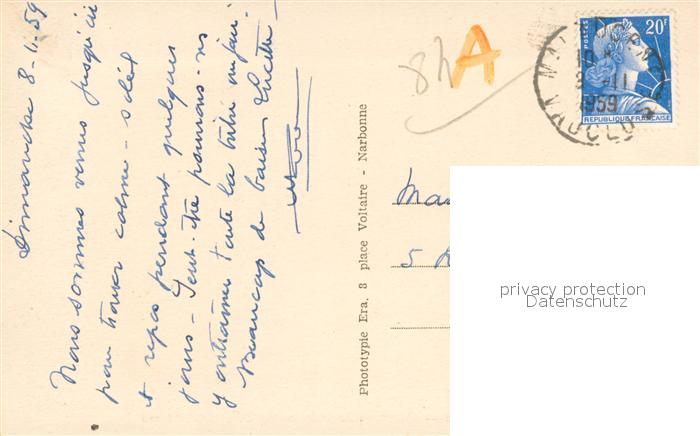 Dimanche 8-11-59
Nous sommes venus jusqu'ici
pour trouver calme - soleil
et repos pendant quelques
jours - Peut-être pourrons-ns
y entraîner toute la tribu un jour
Beaucoup de baisers
Phototypie Era, 8 place Voltaire - Narbonne
84 A
POSTES
20F
REPUBLIQUE FRANÇAISE
-11
1959
VAUCLUSE
5
privacy protection
Datenschutz